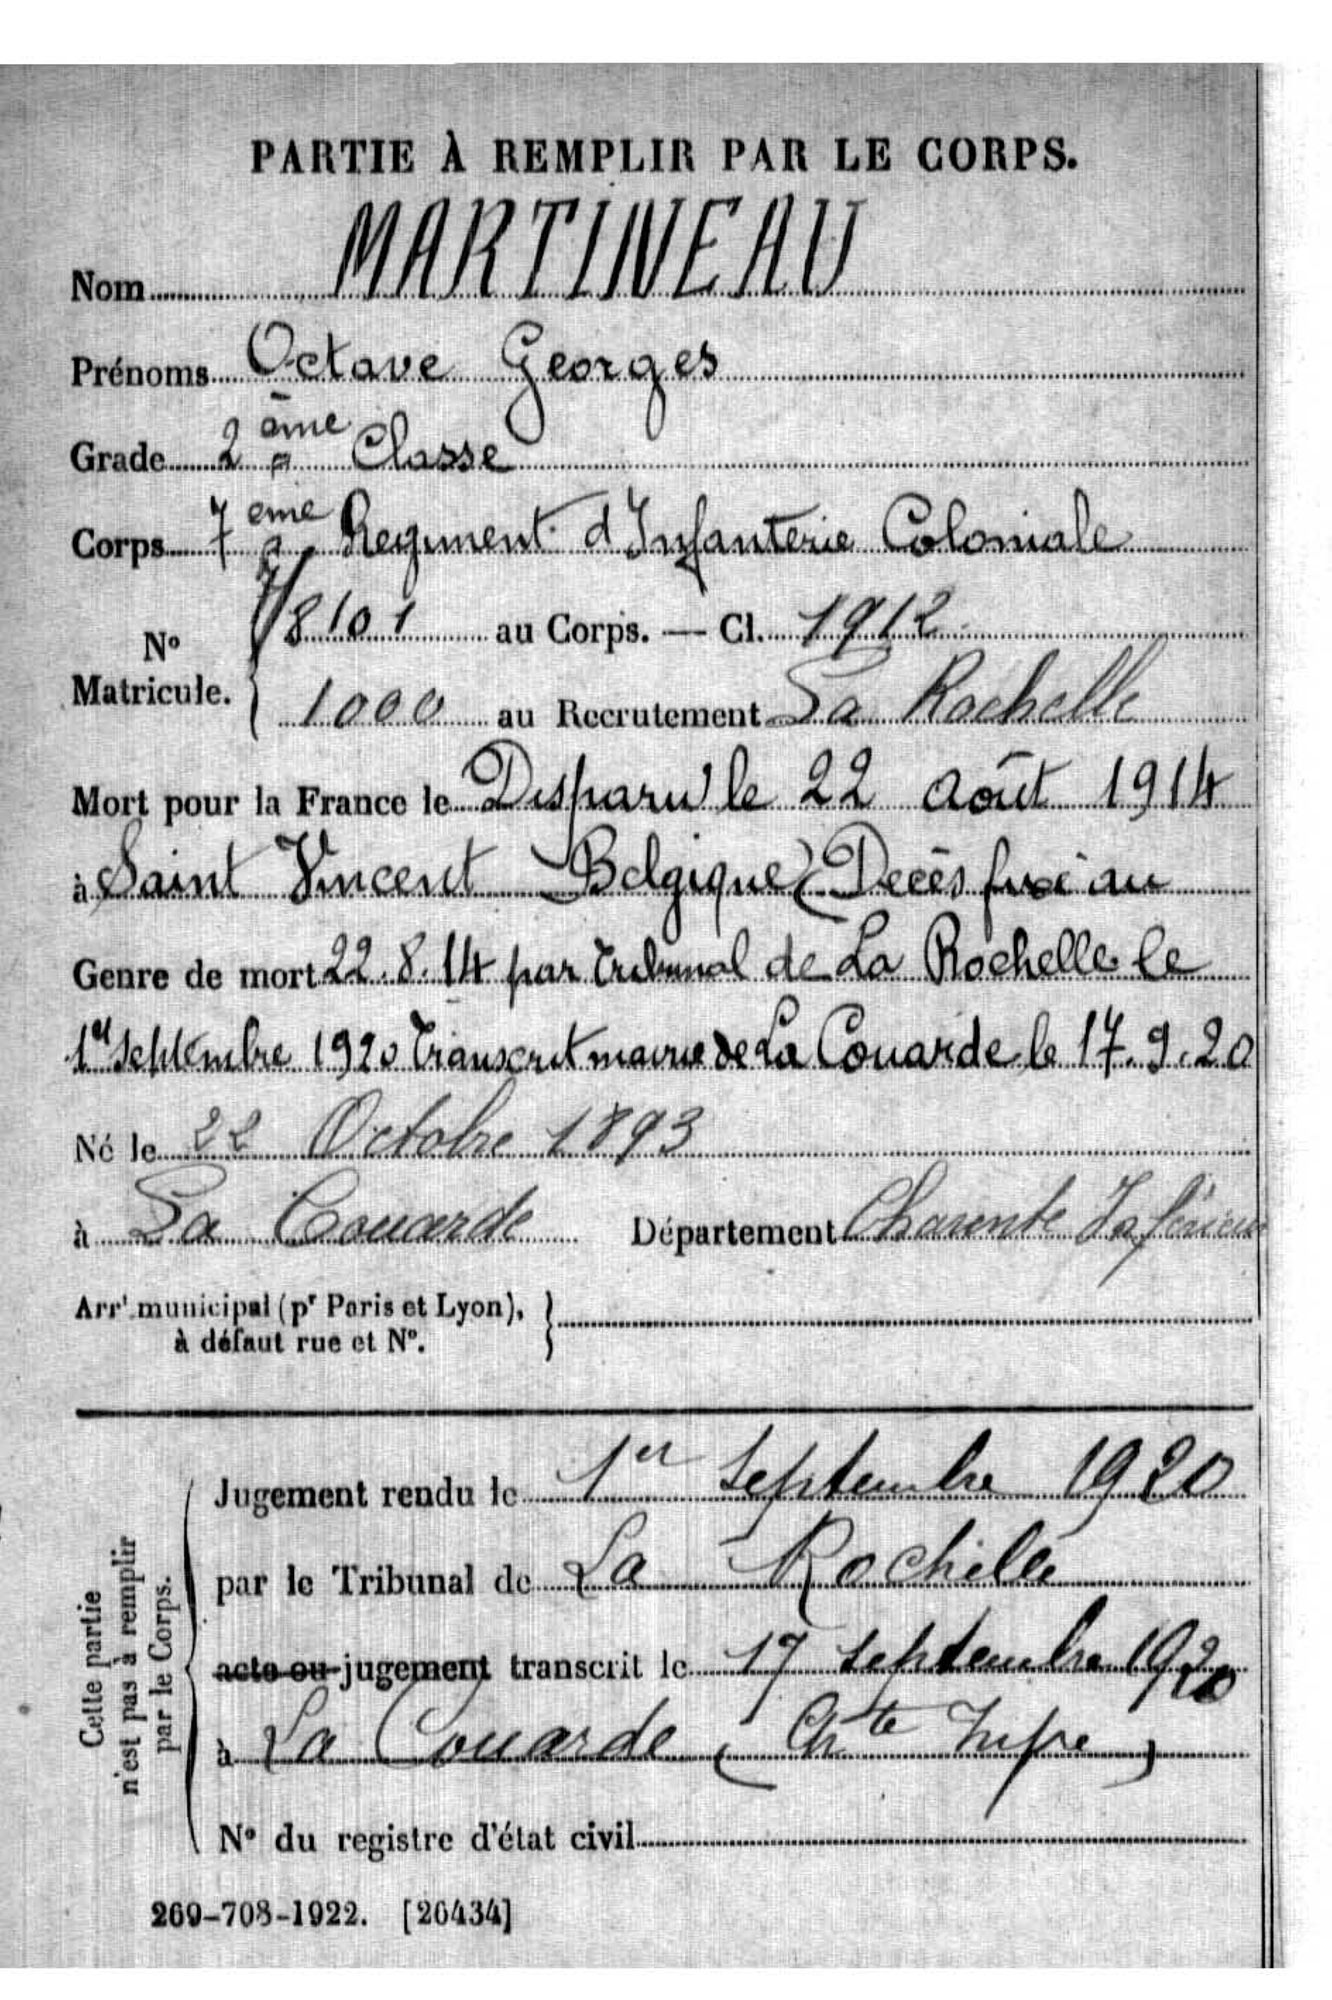 PARTIE À REMPLIR PAR LE CORPS.
Nom MARTINEAU
Prénoms Octave Georges
Grade 2ème Classe
Corps 7eme Regiment d'Infanterie Coloniale
N° Matricule. 8101 au Corps. — Cl. 1912
1000 au Recrutement La Rochelle
Mort pour la France le Disparu le 22 août 1914
à Saint Vincent (Belgique) (Décès fixé au
Genre de mort 22.8.14 par Tribunal de La Rochelle le
1er septembre 1920 Transcrit mairie de La Couarde le 17.9.20
Né le 22 Octobre 1893
à La Couarde Département Charente Inférieure
Arrt municipal (pr Paris et Lyon),
à défaut rue et N°.
Cette partie
n'est pas à remplir
par le Corps.
Jugement rendu le 1er septembre 1920
par le Tribunal de La Rochelle
acte ou jugement transcrit le 17 septembre 1920
à La Couarde (Chte Infre)
N° du registre d'état civil
269-708-1922. [26434]